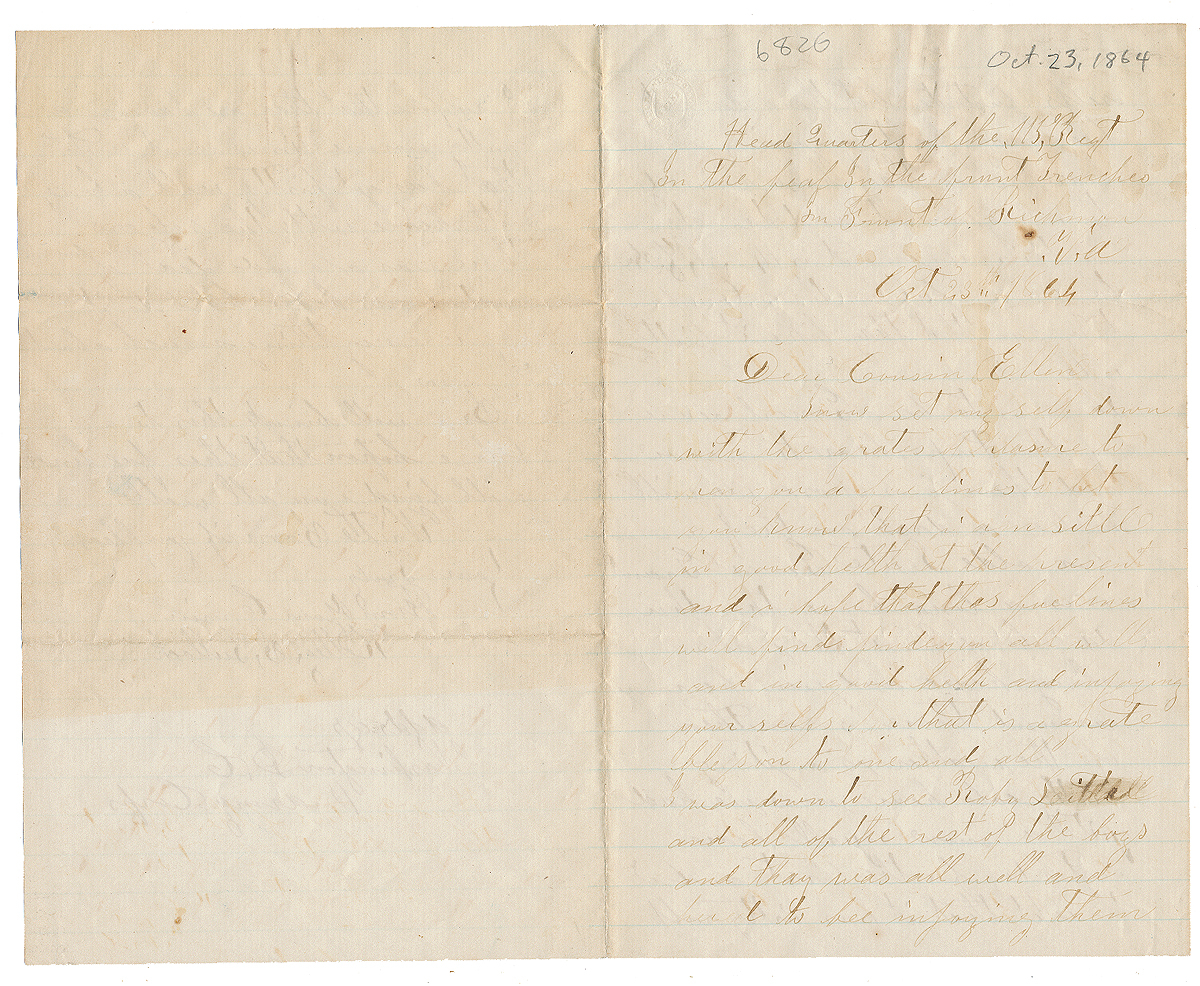 6826
Oct. 23, 1864
Head Quarters of the 115, Regt
In the feaf In the frunt Trenches
in Frunt of Richmon
V.a
Oct 23th 1864
Dear Cousin Ellen
I now set my self down
with the grates plasure to
you a fue lines to let
you know that i am still
in good helth at the present
and i hope that thas fue lines
will finde finde you all well
and in good helth and injoying
your selfs for that is a grate
blesson to one and all
I was down to see Roby
and all of the rest of the boys
and thay was all well and
to bee injoying them